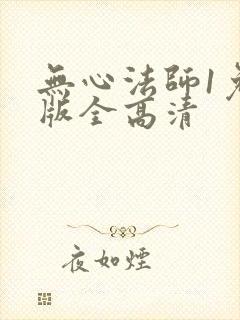 無心法師1
版全高清
夜如煙